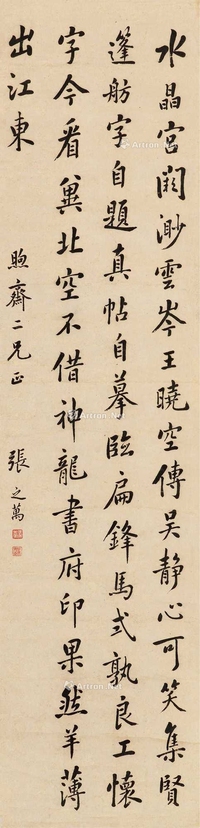 水晶宮闕渺雲岑王曉空傳吴靜心可笑集賢
篷舫字自題真帖自摹臨扁鋒馬式孰良工懷
字今看冀北空不借神龍書府印果然羊薄
出江東
煦齋二兄正
張之萬